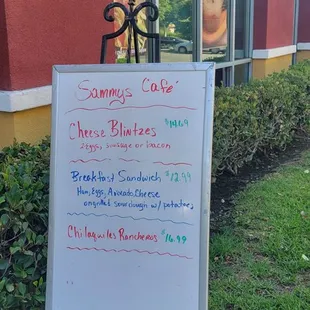 Sammys Café
Cheese Blintzes $14.69
2 eggs, sausage or bacon
Breakfast Sandwich $12.99
Ham, Eggs, Avocado, Cheese
on grilled sourdough w/ potatoes
Chilaquiles Rancheros $16.99